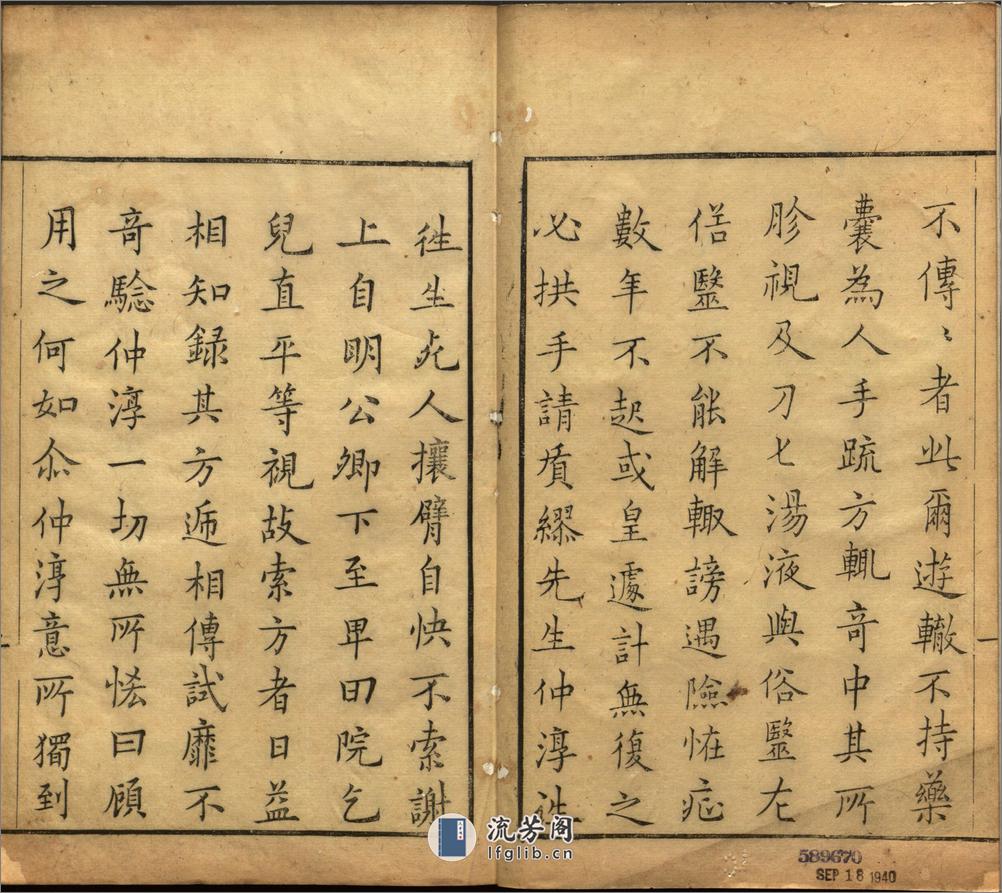 不傳〻者此爾遊轍不持藥
囊為人手疏方輒竒中其所
胗視及刀匕湯液與俗醫左
俗醫不能解輙謗遇險恠症
數年不起或皇遽計無復之
必拱手請質繆先生仲淳徃
徃生死人攘臂自快不索謝
上自明公卿下至卑田院乞
兒直平等視故索方者日益
相知録其方遞相傳試靡不
竒騐仲淳一切無所恡曰顧
用之何如尒仲淳意所獨到
流芳阁
lfglib.cn
589670
SEP 18 1940